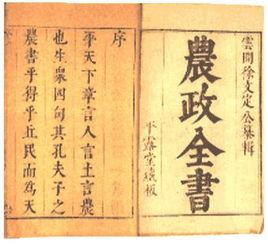 雲間徐文定公纂輯
農政全書
平露堂鐫板
序
平天下章言人言土言農
也生衆四句其孔夫子之
農書乎得乎丘民而為天